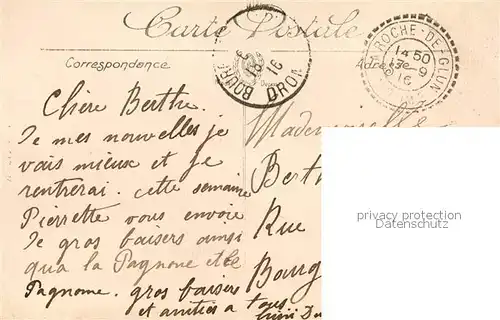 Carte Postale
Correspondance
BOURG DROM
16
ROCHE-DE-GLUN
14 50
9
16
Chère Berthe.
Je mes nouvelles je
vais mieux et je
rentrerai. cette semaine
Pierrette vous envoie
de gros baisers ainsi
qua la Pagnone et le
Pagnome. gros baisers
et amitiés a tous.
Mademoiselle
Berth
Rue
Bourg
privacy protection
Datenschutz